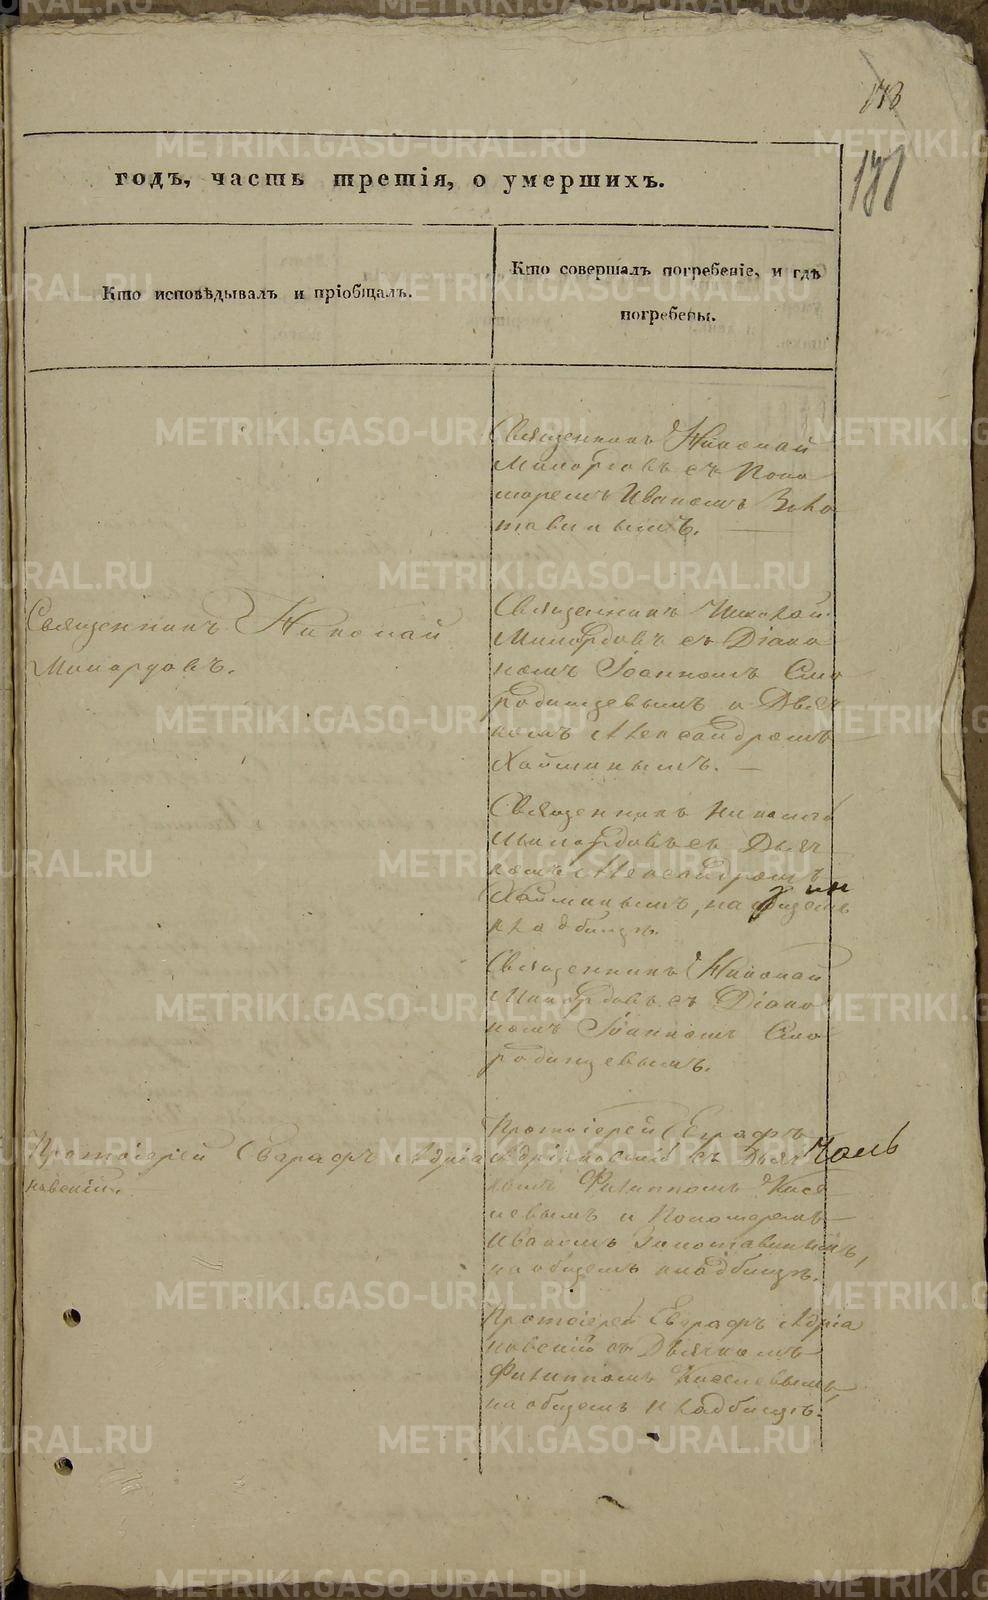 годъ, часть третія, о умершихъ.
Кто исповѣдывалъ и пріобщалъ.
Кто совершалъ погребеніе, и гдѣ
погребены.
Священникъ Николай
съ Поно
маремъ Иваномъ Золо
тавинымъ.
Священникъ Николай
Священникъ Николай
съ Діако
номъ Іоанномъ Смо
родинцевымъ и Дьяч
комъ Александромъ
Хайминымъ.
Священникъ Николай
съ Дьяч
комъ Александромъ
Хайминымъ, на общемъ
кладбищѣ.
Священникъ Николай
съ Діако
номъ Іоанномъ Смо
родинцевымъ.
Протоіерей Евграфъ Адріа
новскій.
Протоіерей Евграфъ
Адріановскій съ Дьяч
комъ Филиппомъ Кисе
левымъ и Пономаремъ
Иваномъ Золотавинымъ,
на общемъ кладбищѣ.
Протоіерей Евграфъ Адріа
новскій съ Дьячкомъ
Филиппомъ Киселевымъ,
на общемъ кладбищѣ.
METRIKI.GASO-URAL.RU